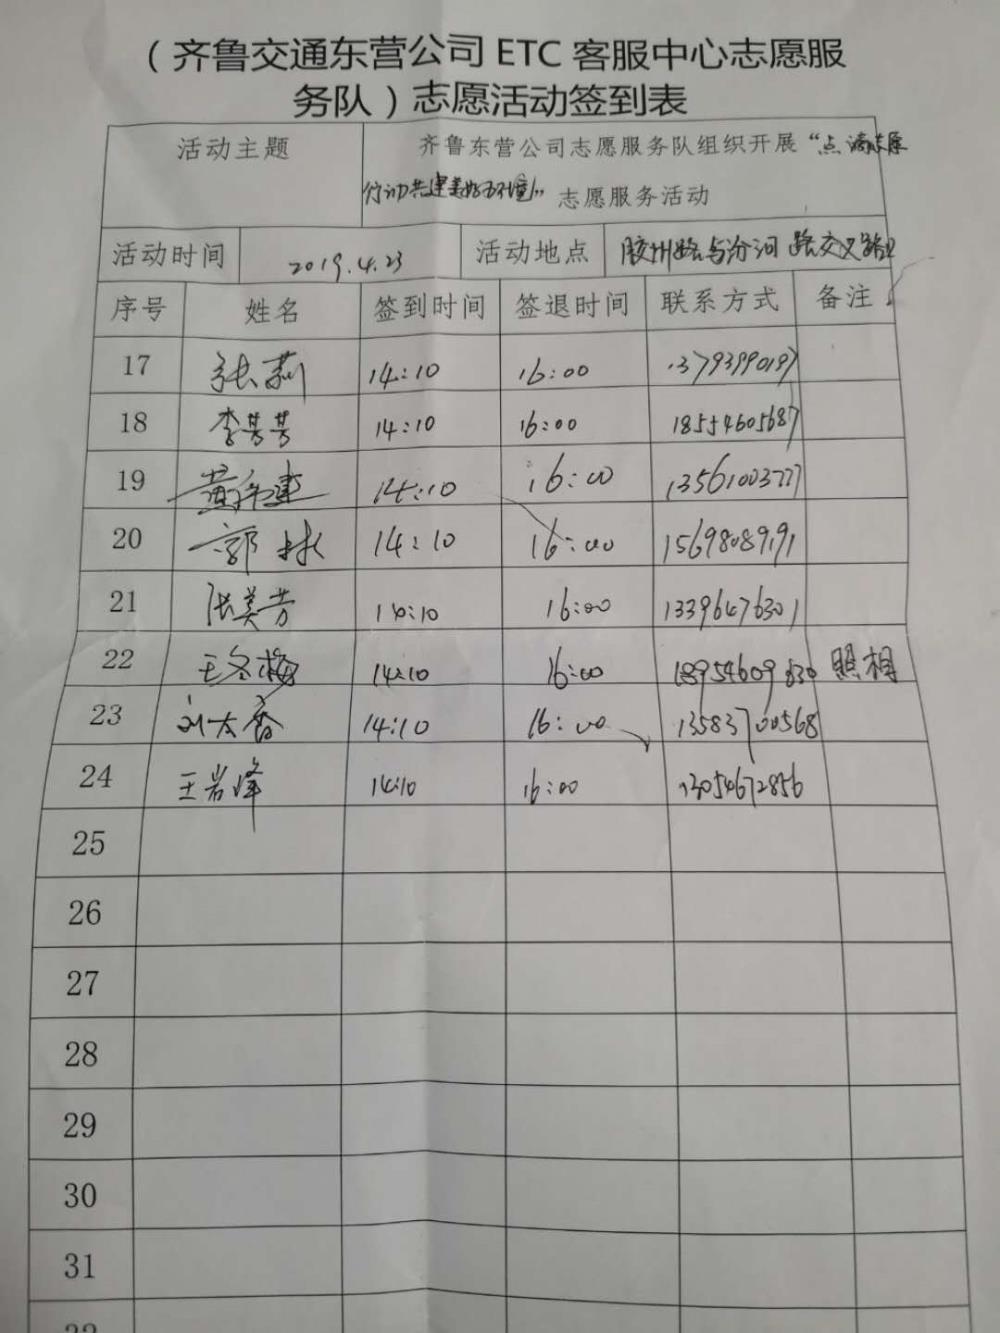 （齐鲁交通东营公司 ETC 客服中心志愿服
务队）志愿活动签到表
活动主题 齐鲁东营公司志愿服务队组织开展“点滴志愿
行动 共建美好环境” 志愿服务活动
活动时间 2019.4.23 活动地点 胶州路与汾河路交叉路口
序号 姓名 签到时间 签退时间 联系方式 备注
17 张莉 14:10 16:00 13793990197
18 李芳芳 14:10 16:00 18554605687
19 黄 建 14:10 16:00 13561003777
20 郭林 14:10 16:00 15698089191
21 张美芳 14:10 16:00 13396476301
22 王冬梅 14:10 16:00 18954609830 照相
23 刘大香 14:10 16:00 13583700568
24 王岩峰 14:10 16:00 13054672856
25
26
27
28
29
30
31